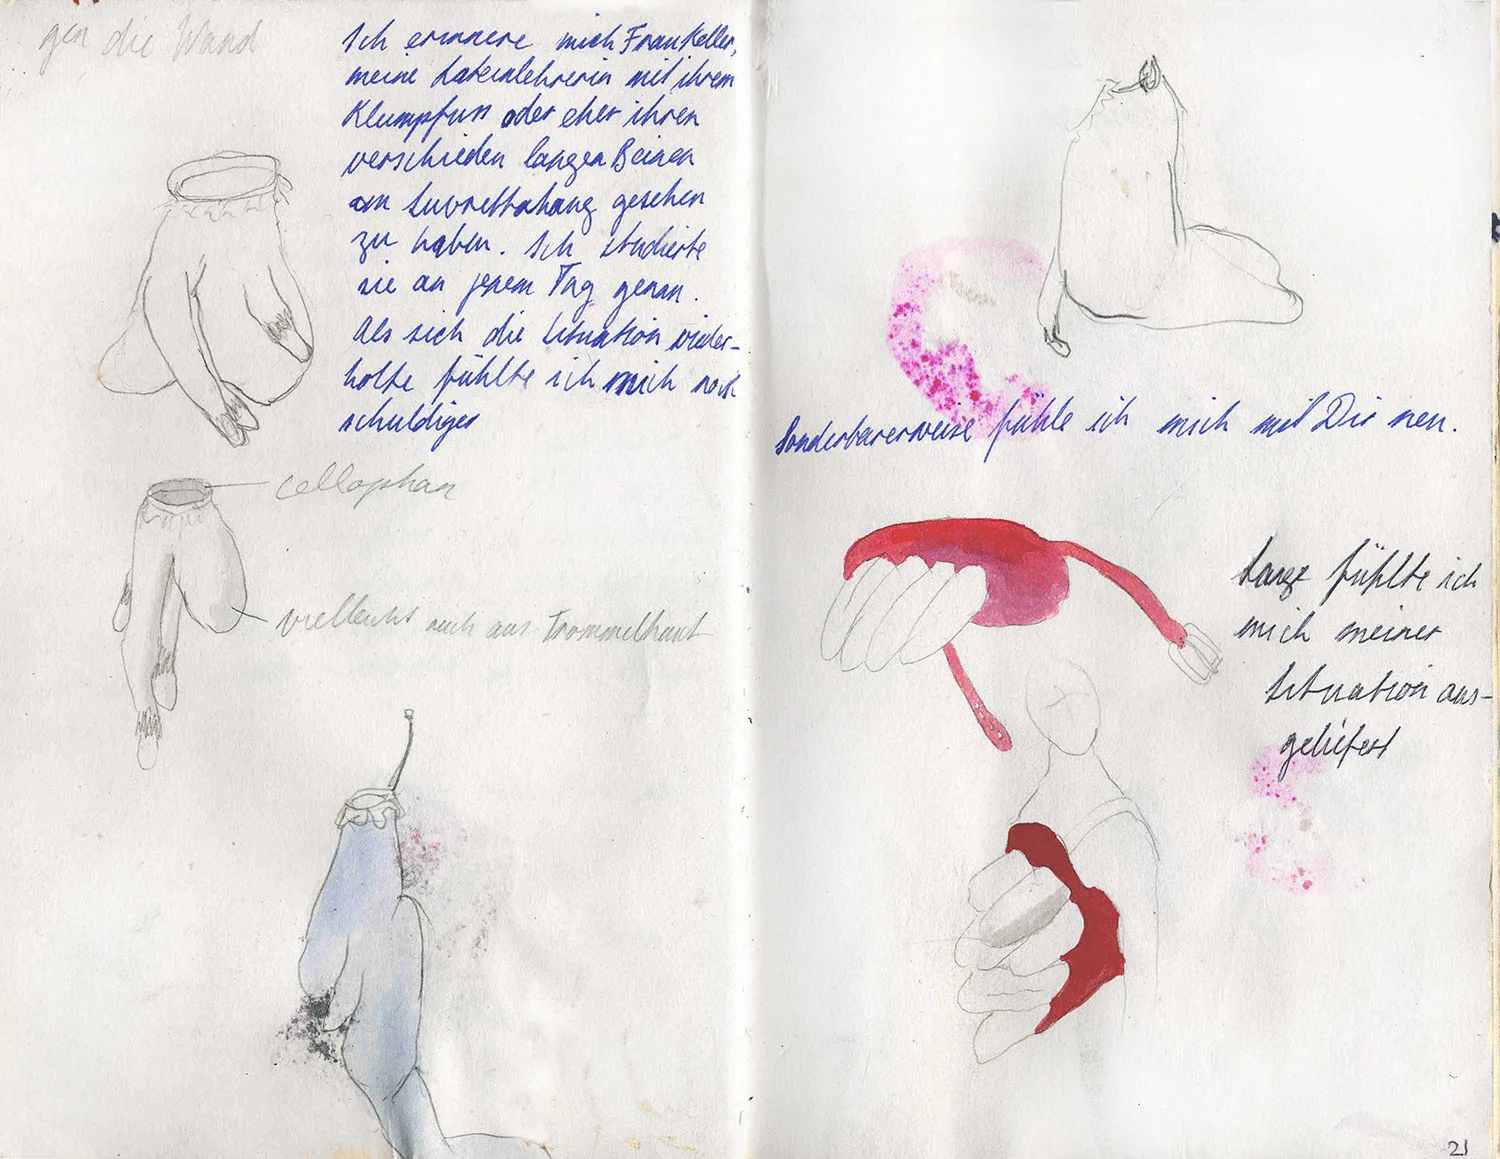 gen die Wand
Ich erinnere mich Frau Keller,
meine Lateinlehrerin mit ihrem
Klumpfuss oder eher ihren
verschieden langen Beinen
am Suvrettahang gesehen
zu haben. Ich studierte
sie an jenem Tag genau.
Als sich die Situation wieder-
holte fühlte ich mich noch
schuldiger
cellophan
vielleicht auch aus Trommelhaut
Sonderbarerweise fühle ich mich mit Dir neu.
Lange fühlte ich
mich meiner
Situation aus-
geliefert
21